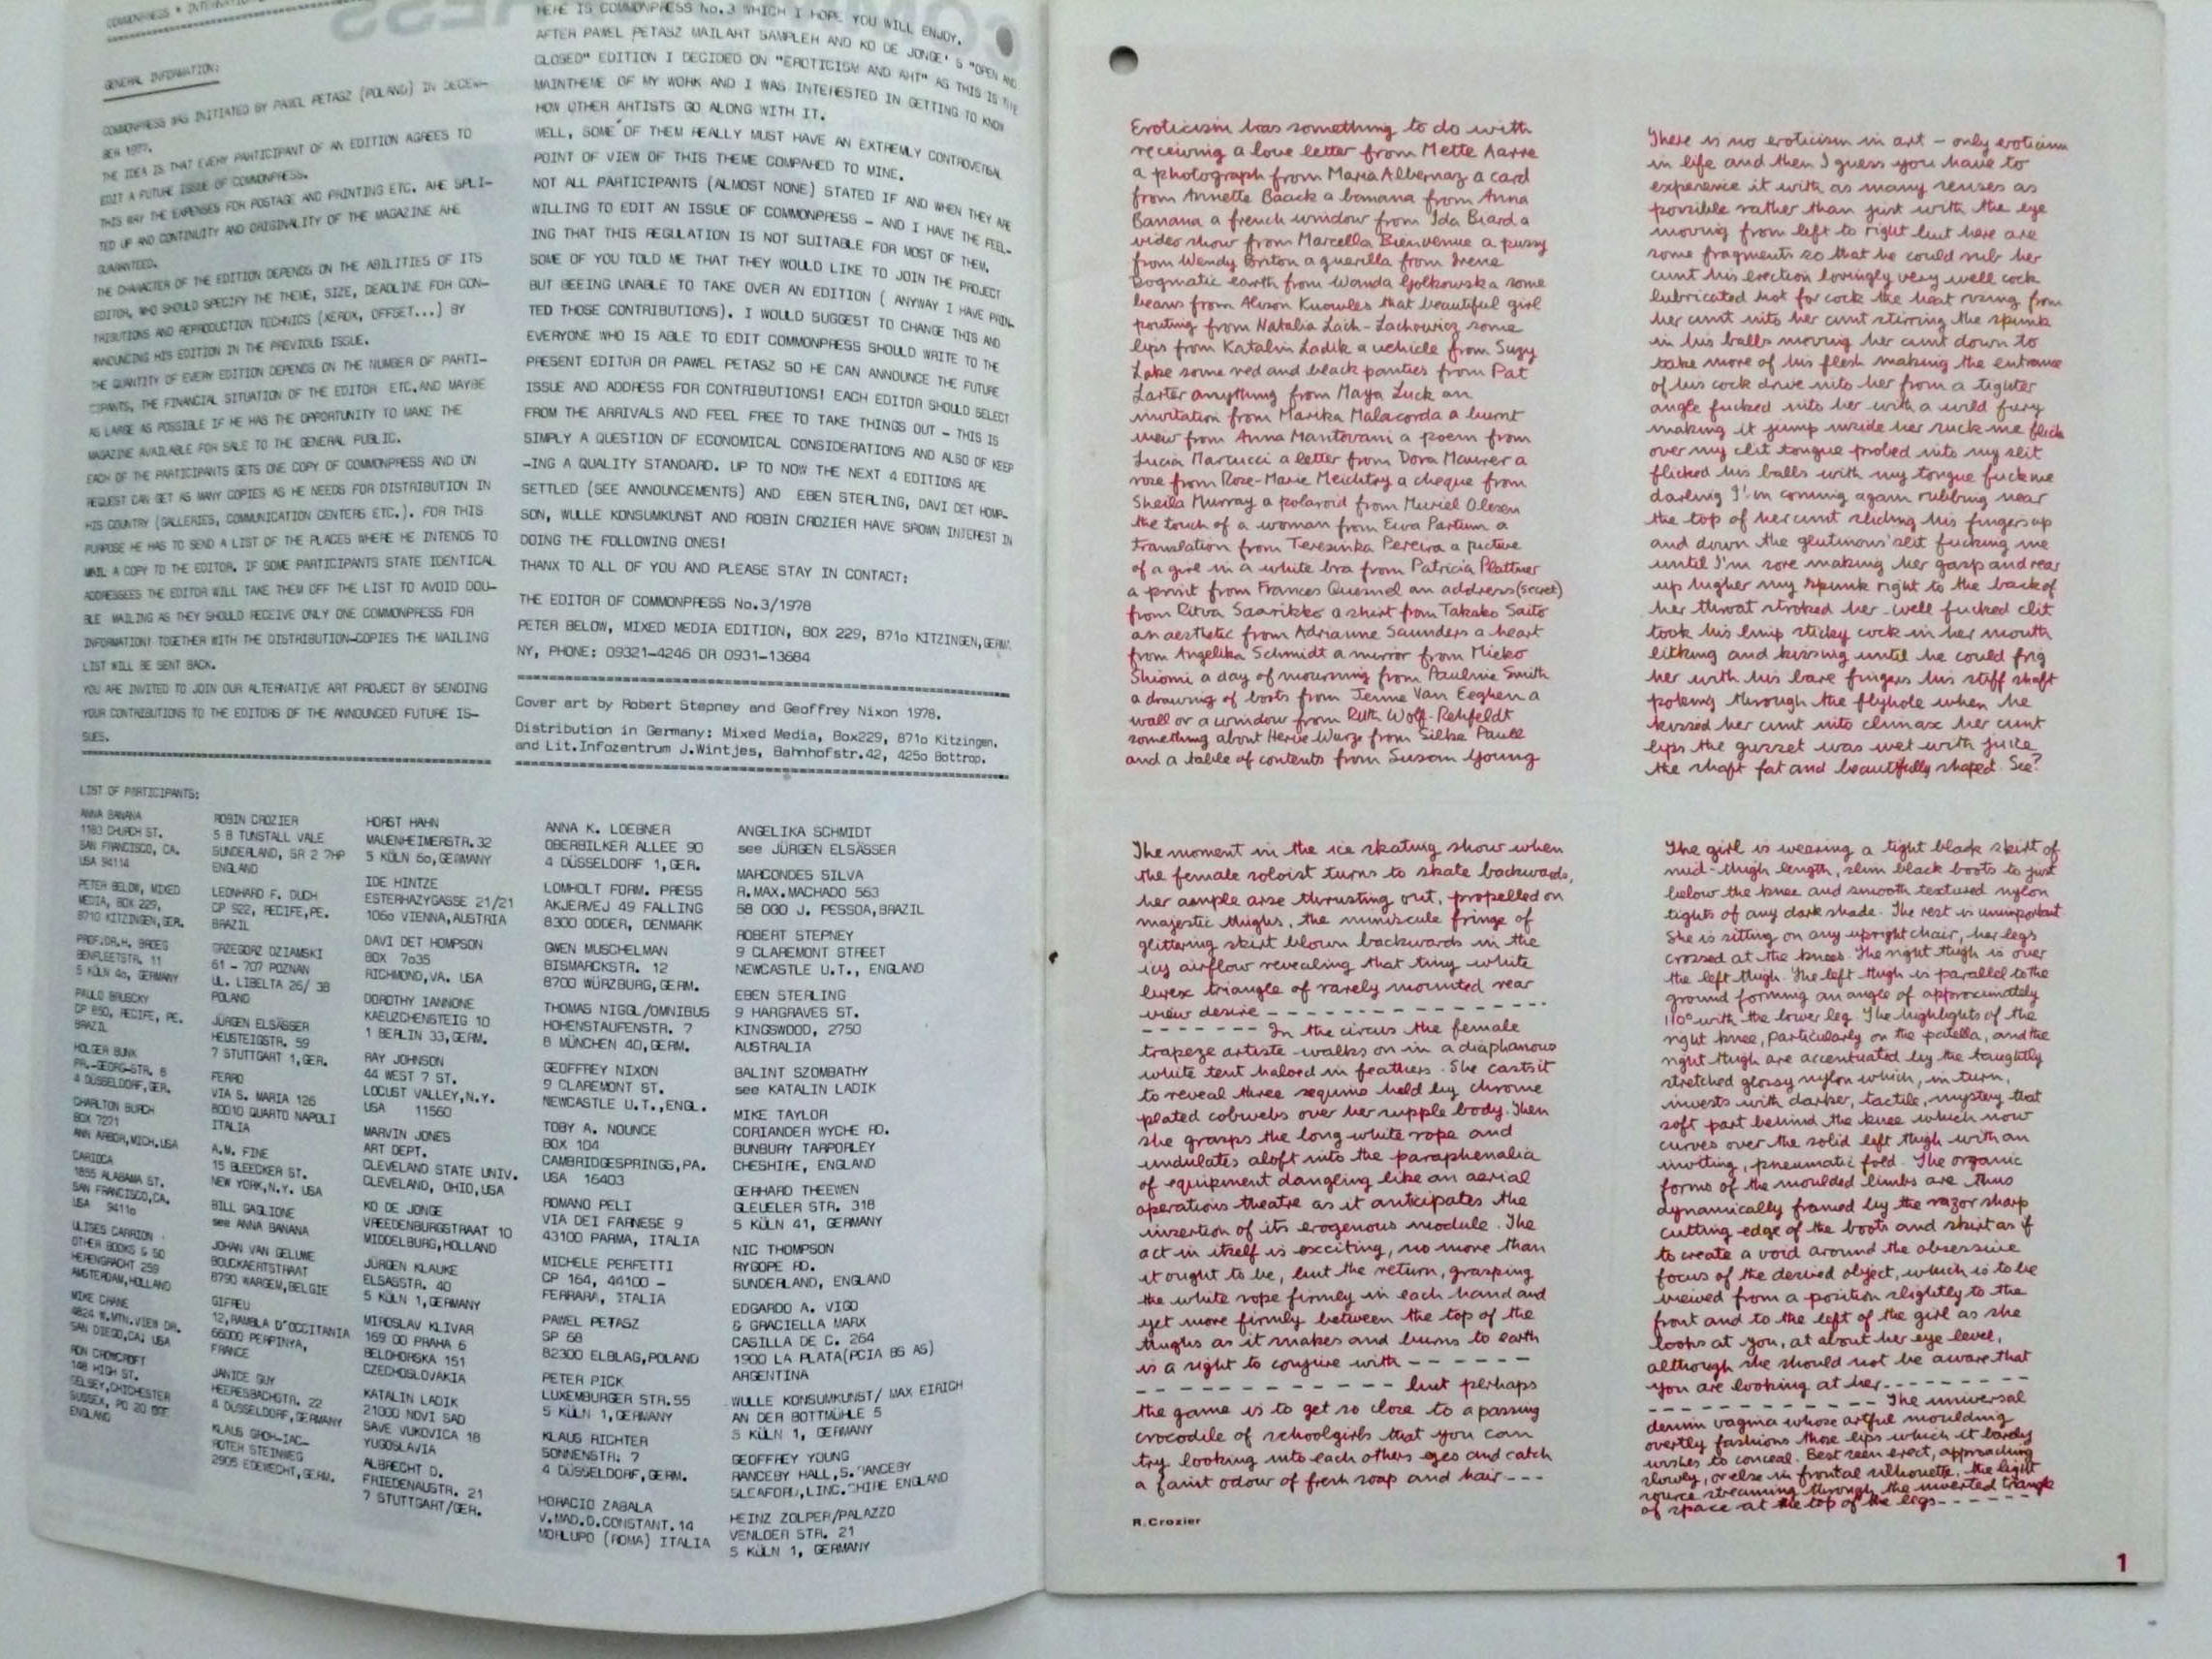 COMMONPRESS * INTERNATIO
GENERAL INFORMATION:
COMMONPRESS WAS INITIATED BY PAWEL PETASZ (POLAND) IN DECEM-
BER 1977.
THE IDEA IS THAT EVERY PARTICIPANT OF AN EDITION AGREES TO
EDIT A FUTURE ISSUE OF COMMONPRESS.
THIS WAY THE EXPENSES FOR POSTAGE AND PRINTING ETC. ARE SPLI-
TED UP AND CONTINUITY AND ORIGINALITY OF THE MAGAZINE ARE
GUARANTEED.
THE CHARACTER OF THE EDITION DEPENDS ON THE ABILITIES OF ITS
EDITOR, WHO SHOULD SPECIFY THE THEME, SIZE, DEADLINE FOR CON-
TRIBUTIONS AND REPRODUCTION TECHNICS (XEROX, OFFSET...) BY
ANNOUNCING HIS EDITION IN THE PREVIOUS ISSUE.
THE QUANTITY OF EVERY EDITION DEPENDS ON THE NUMBER OF PARTI-
CIPANTS, THE FINANCIAL SITUATION OF THE EDITOR ETC. AND MAYBE
AS LARGE AS POSSIBLE IF HE HAS THE OPPORTUNITY TO MAKE THE
MAGAZINE AVAILABLE FOR SALE TO THE GENERAL PUBLIC.
EACH OF THE PARTICIPANTS GETS ONE COPY OF COMMONPRESS AND ON
REQUEST CAN GET AS MANY COPIES AS HE NEEDS FOR DISTRIBUTION IN
HIS COUNTRY (GALLERIES, COMMUNICATION CENTERS ETC.). FOR THIS
PURPOSE HE HAS TO SEND A LIST OF THE PLACES WHERE HE INTENDS TO
MAIL A COPY TO THE EDITOR. IF SOME PARTICIPANTS STATE IDENTICAL
ADDRESSEES THE EDITOR WILL TAKE THEM OFF THE LIST TO AVOID DOU-
BLE MAILING AS THEY SHOULD RECEIVE ONLY ONE COMMONPRESS FOR
INFORMATION! TOGETHER WITH THE DISTRIBUTION-COPIES THE MAILING
LIST WILL BE SENT BACK.
YOU ARE INVITED TO JOIN OUR ALTERNATIVE ART PROJECT BY SENDING
YOUR CONTRIBUTIONS TO THE EDITORS OF THE ANNOUNCED FUTURE IS-
SUES.
HERE IS COMMONPRESS No.3 WHICH I HOPE YOU WILL ENJOY.
AFTER PAWEL PETASZ MAILART SAMPLER AND KO DE JONGE'S "OPEN AND
CLOSED" EDITION I DECIDED ON "EROTICISM AND ART" AS THIS IS THE
MAINTHEME OF MY WORK AND I WAS INTERESTED IN GETTING TO KNOW
HOW OTHER ARTISTS GO ALONG WITH IT.
WELL, SOME OF THEM REALLY MUST HAVE AN EXTREMLY CONTROVERSAL
POINT OF VIEW OF THIS THEME COMPARED TO MINE.
NOT ALL PARTICIPANTS (ALMOST NONE) STATED IF AND WHEN THEY ARE
WILLING TO EDIT AN ISSUE OF COMMONPRESS - AND I HAVE THE FEEL-
ING THAT THIS REGULATION IS NOT SUITABLE FOR MOST OF THEM.
SOME OF YOU TOLD ME THAT THEY WOULD LIKE TO JOIN THE PROJECT
BUT BEEING UNABLE TO TAKE OVER AN EDITION ( ANYWAY I HAVE PRIN-
TED THOSE CONTRIBUTIONS). I WOULD SUGGEST TO CHANGE THIS AND
EVERYONE WHO IS ABLE TO EDIT COMMONPRESS SHOULD WRITE TO THE
PRESENT EDITOR OR PAWEL PETASZ SO HE CAN ANNOUNCE THE FUTURE
ISSUE AND ADDRESS FOR CONTRIBUTIONS! EACH EDITOR SHOULD SELECT
FROM THE ARRIVALS AND FEEL FREE TO TAKE THINGS OUT - THIS IS
SIMPLY A QUESTION OF ECONOMICAL CONSIDERATIONS AND ALSO OF KEEP
-ING A QUALITY STANDARD. UP TO NOW THE NEXT 4 EDITIONS ARE
SETTLED (SEE ANNOUNCEMENTS) AND EBEN STERLING, DAVI DET HOMP-
SON, WULLE KONSUMKUNST AND ROBIN CROZIER HAVE SHOWN INTEREST IN
DOING THE FOLLOWING ONES!
THANX TO ALL OF YOU AND PLEASE STAY IN CONTACT;
THE EDITOR OF COMMONPRESS No.3/1978
PETER BELOW, MIXED MEDIA EDITION, BOX 229, 871o KITZINGEN, GERMA
NY, PHONE: 09321-4246 OR 0931-13684
Cover art by Robert Stepney and Geoffrey Nixon 1978.
Distribution in Germany: Mixed Media, Box229, 871o Kitzingen.
and Lit.Infozentrum J.Wintjes, Bahnhofstr.42, 425o Bottrop.
LIST OF PARTICIPANTS:
ANNA BANANA
1183 CHURCH ST.
SAN FRANCISCO, CA.
USA 94114
PETER BELOW, MIXED
MEDIA, BOX 229,
8710 KITZINGEN,GER.
PROF.DR.H. BROEG
BENFLEETSTR. 11
5 KÖLN 4o, GERMANY
PAULO BRUSCKY
CP 850, RECIFE, PE.
BRAZIL
HOLGER BUNK
PR.-GEORG-STR. 6
4 DÜSSELDORF,GER.
CHARLTON BURCH
BOX 7271
ANN ARBOR,MICH.USA
CARIOCA
1855 ALABAMA ST.
SAN FRANCISCO,CA.
USA 9411o
ULISES CARRION
OTHER BOOKS & SO
HERENGRACHT 259
AMSTERDAM,HOLLAND
MIKE CRANE
4824 W.MTN.VIEW DR.
SAN DIEGO,CA. USA
RON CROWCROFT
148 HIGH ST.
SELSEY,CHICHESTER
SUSSEX, PO 20
ENGLAND
ROBIN CROZIER
5 B TUNSTALL VALE
SUNDERLAND, SR 2 7HP
ENGLAND
LEONHARD F. DUCH
CP 922, RECIFE,PE.
BRAZIL
GRZEGORZ DZIAMSKI
61 - 707 POZNAN
UL. LIBELTA 26/ 38
POLAND
JÜRGEN ELSÄSSER
HEUSTEIGSTR. 59
7 STUTTGART 1,GER.
FERRO
VIA S. MARIA 126
80010 QUARTO NAPOLI
ITALIA
A.M. FINE
15 BLEECKER ST.
NEW YORK,N.Y. USA
BILL GAGLIONE
see ANNA BANANA
JOHAN VAN GELUWE
BOUCKAERTSTRAAT
8790 WAREGEM,BELGIE
GIFREU
12,RAMBLA D'OCCITANIA
66000 PERPINYA,
FRANCE
JANICE GUY
HEERESBACHSTR. 22
4 DÜSSELDORF,GERMANY
KLAUS GROH-IAC-
ROTER STEINWEG
2905 EDEWECHT,GERM.
HORST HAHN
MAUENHEIMERSTR.32
5 KÖLN 6o,GERMANY
IDE HINTZE
ESTERHAZYGASSE 21/21
106o VIENNA,AUSTRIA
DAVI DET HOMPSON
BOX 7o35
RICHMOND,VA. USA
DOROTHY IANNONE
KAEUZCHENSTEIG 10
1 BERLIN 33,GERM.
RAY JOHNSON
44 WEST 7 ST.
LOCUST VALLEY,N.Y.
USA 11560
MARVIN JONES
ART DEPT.
CLEVELAND STATE UNIV.
CLEVELAND, OHIO,USA
KO DE JONGE
VREEDENBURGSTRAAT 10
MIDDELBURG,HOLLAND
JÜRGEN KLAUKE
ELSASSTR. 40
5 KÖLN 1,GERMANY
MIROSLAV KLIVAR
169 OO PRAHA 6
BELOHORSKA 151
CZECHOSLOVAKIA
KATALIN LADIK
21000 NOVI SAD
SAVE VUKOVICA 18
YUGOSLAVIA
ALBRECHT D.
FRIEDENAUSTR. 21
7 STUTTGART/GER.
ANNA K. LOEBNER
OBERBILKER ALLEE 90
4 DÜSSELDORF 1,GER.
LOMHOLT FORM. PRESS
AKJERVEJ 49 FALLING
8300 ODDER, DENMARK
GWEN MUSCHELMAN
BISMARCKSTR. 12
8700 WÜRZBURG,GERM.
THOMAS NIGGL/OMNIBUS
HOHENSTAUFENSTR. 7
8 MÜNCHEN 40,GERM.
GEOFFREY NIXON
9 CLAREMONT ST.
NEWCASTLE U.T.,ENGL.
TOBY A. NOUNCE
BOX 104
CAMBRIDGESPRINGS,PA.
USA 16403
ROMANO PELI
VIA DEI FARNESE 9
43100 PARMA, ITALIA
MICHELE PERFETTI
CP 164, 44100 -
FERRARA, ITALIA
PAWEL PETASZ
SP 68
82300 ELBLAG,POLAND
PETER PICK
LUXEMBURGER STR.55
5 KÖLN 1,GERMANY
KLAUS RICHTER
SONNENSTR. 7
4 DÜSSELDORF,GERM.
HORACIO ZABALA
V.MAD.D.CONSTANT.14
MORLUPO (ROMA) ITALIA
ANGELIKA SCHMIDT
see JÜRGEN ELSÄSSER
MARCONDES SILVA
R.MAX.MACHADO 563
58 000 J. PESSOA,BRAZIL
ROBERT STEPNEY
9 CLAREMONT STREET
NEWCASTLE U.T., ENGLAND
EBEN STERLING
9 HARGRAVES ST.
KINGSWOOD, 2750
AUSTRALIA
BALINT SZOMBATHY
see KATALIN LADIK
MIKE TAYLOR
CORIANDER WYCHE RD.
BUNBURY TARPORLEY
CHESHIRE, ENGLAND
GERHARD THEEWEN
GLEUELER STR. 318
5 KÖLN 41, GERMANY
NIC THOMPSON
RYGOPE RD.
SUNDERLAND, ENGLAND
EDGARDO A. VIGO
& GRACIELLA MARX
CASILLA DE C. 264
1900 LA PLATA(PCIA BS AS)
ARGENTINA
WULLE KONSUMKUNST/ MAX EIRICH
AN DER BOTTMÜHLE 5
5 KÖLN 1, GERMANY
GEOFFREY YOUNG
RANCEBY HALL,S.RANCEBY
SLEAFORD,LINC.SHIRE ENGLAND
HEINZ ZOLPER/PALAZZO
VENLOER STR. 21
5 KÖLN 1, GERMANY
Eroticism has something to do with
receiving a love letter from Mette Aarre
a photograph from Maria Albernaz a card
from Annette Baack a banana from Anna
Banana a french window from Ida Biard a
video show from Marcella Bienvenue a pussy
from Wendy Briton a guerilla from Irene
Dogmatic earth from Wanda Golkowska some
beans from Alison Knowles that beautiful girl
pouting from Natalia Lach-Lachowicz some
lips from Katalin Ladik a vehicle from Suzy
Lake some red and black panties from Pat
Larter anything from Maya Luck an
invitation from Marika Malacorda a burnt
view from Anna Mantovani a poem from
Lucia Marcucci a letter from Dora Maurer a
rose from Rose-Marie Meichtry a cheque from
Sheila Murray a polaroid from Muriel Olesen
the touch of a woman from Ewa Partum a
translation from Teresinka Pereira a picture
of a girl in a white bra from Patricia Plattner
a print from Frances Quesnel an address(secret)
from Ritva Saarikko a shirt from Takako Saito
an aesthetic from Adrianne Saunders a heart
from Angelika Schmidt a mirror from Mieko
Shiomi a day of mourning from Pauline Smith
a drawing of bosts from Jenne Van Eeghen a
wall or a window from Ruth Wolf-Rehfeldt
something about Herve Wurz from Silke Paull
and a table of contents from Susan Young
There is no eroticism in art - only eroticism
in life and then I guess you have to
experience it with as many senses as
possible rather than just with the eye
moving from left to right but here are
some fragments so that he could rub her
cunt his erection lovingly very well cock
lubricated hot for cock the heat rising from
her cunt into her cunt stirring the spunk
in his balls moving her cunt down to
take more of his flesh making the entrance
of his cock drive into her from a tighter
angle fucked into her with a wild fury
making it jump inside her suck me flick
over my clit tongue probed into my slit
flicked his balls with my tongue fuck me
darling I'm coming again rubbing near
the top of her cunt sliding his fingers up
and down the glutinous slit fucking me
until I'm sore making her gasp and rear
up higher my spunk right to the back of
her throat stroked her well fucked clit
took his limp sticky cock in her mouth
licking and kissing until he could frig
her with his bare fingers his stiff shaft
poking through the flyhole when he
kissed her cunt into climax her cunt
lips the gusset was wet with juice
the shaft fat and beautifully shaped. See?
The moment in the ice skating show when
the female soloist turns to skate backwards,
her ample arse thrusting out, propelled on
majestic thighs, the miniscule fringe of
glittering skirt blown backwards in the
icy airflow revealing that tiny white
lurex triangle of rarely mounted rear
view desire - - - - - - - - - - - - -
- - - - - - - In the circus the female
trapeze artiste walks on in a diaphanous
white tent haloed in feathers. She casts it
to reveal three sequins held by chrome
plated cobwebs over her supple body. Then
she grasps the long white rope and
undulates aloft into the paraphenalia
of equipment dangling like an aerial
operations theatre as it anticipates the
insertion of its erogenous module. The
act in itself is exciting, no more than
it ought to be, but the return, grasping
the white rope firmly in each hand and
yet more firmly between the top of the
thighs as it snakes and burns to earth
is a sight to conjure with - - - - - -
- - - - - - - - - - - - but perhaps
the game is to get so close to a passing
crocodile of schoolgirls that you can
try looking into each others eyes and catch
a faint odour of fresh soap and hair - - -
R.Crozier
The girl is wearing a tight black skirt of
mid-thigh length, slim black boots to just
below the knee and smooth textured nylon
tights of any dark shade. The rest is unimportant.
She is sitting on any upright chair, her legs
crossed at the knees. The right thigh is over
the left thigh. The left thigh is parallel to the
ground forming an angle of approximately
110° with the lower leg. The highlights of the
right knee, particularly on the patella, and the
right thigh are accentuated by the taughtly
stretched glossy nylon which, in turn,
invests with darker, tactile, mystery that
soft part behind the knee which now
curves over the solid left thigh with an
inviting, pneumatic fold. The organic
forms of the moulded limbs are thus
dynamically framed by the razor sharp
cutting edge of the boots and skirt as if
to create a void around the obsessive
focus of the desired object, which is to be
viewed from a position slightly to the
front and to the left of the girl as she
looks at you, at about her eye level,
although she should not be aware that
you are looking at her - - - - - - - -
- - - - - - - - - - - - The universal
denim vagina whose artful moulding
overtly fashions those lips which it barely
wishes to conceal. Best seen erect, approaching
slowly, or else in frontal silhouette, the light
source streaming through the inverted triangle
of space at the top of the legs - - - - - - -
1